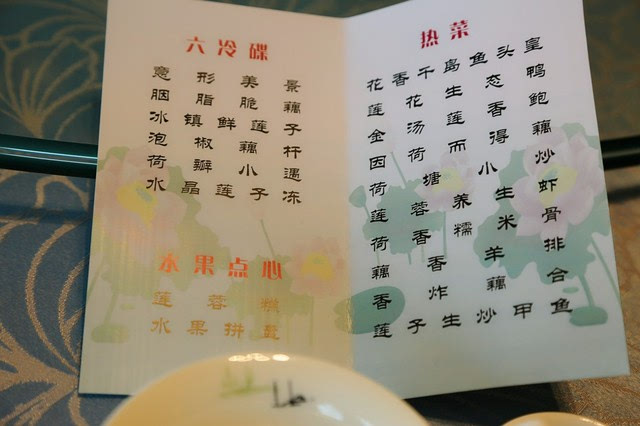 六冷碟
意形美景
胭脂脆藕
冰镇鲜莲子
泡椒藕杆
荷瓣小遇
水晶莲子冻
水果点心
莲蓉糕
水果拼盘
热菜
花香千岛鱼头皇
莲花生态鸭
金汤莲香鲍
因荷而得藕
荷塘小炒
莲蓉养生虾
荷香糯米骨
藕香羊排
香炸藕合
莲子生炒甲鱼